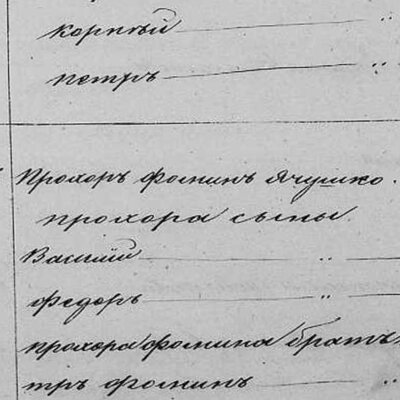 корнѣй
петръ
Прохоръ фоминъ Ячушко.
прохора сыны
Василій
федоръ
прохора фомина братъ
тръ фоминъ